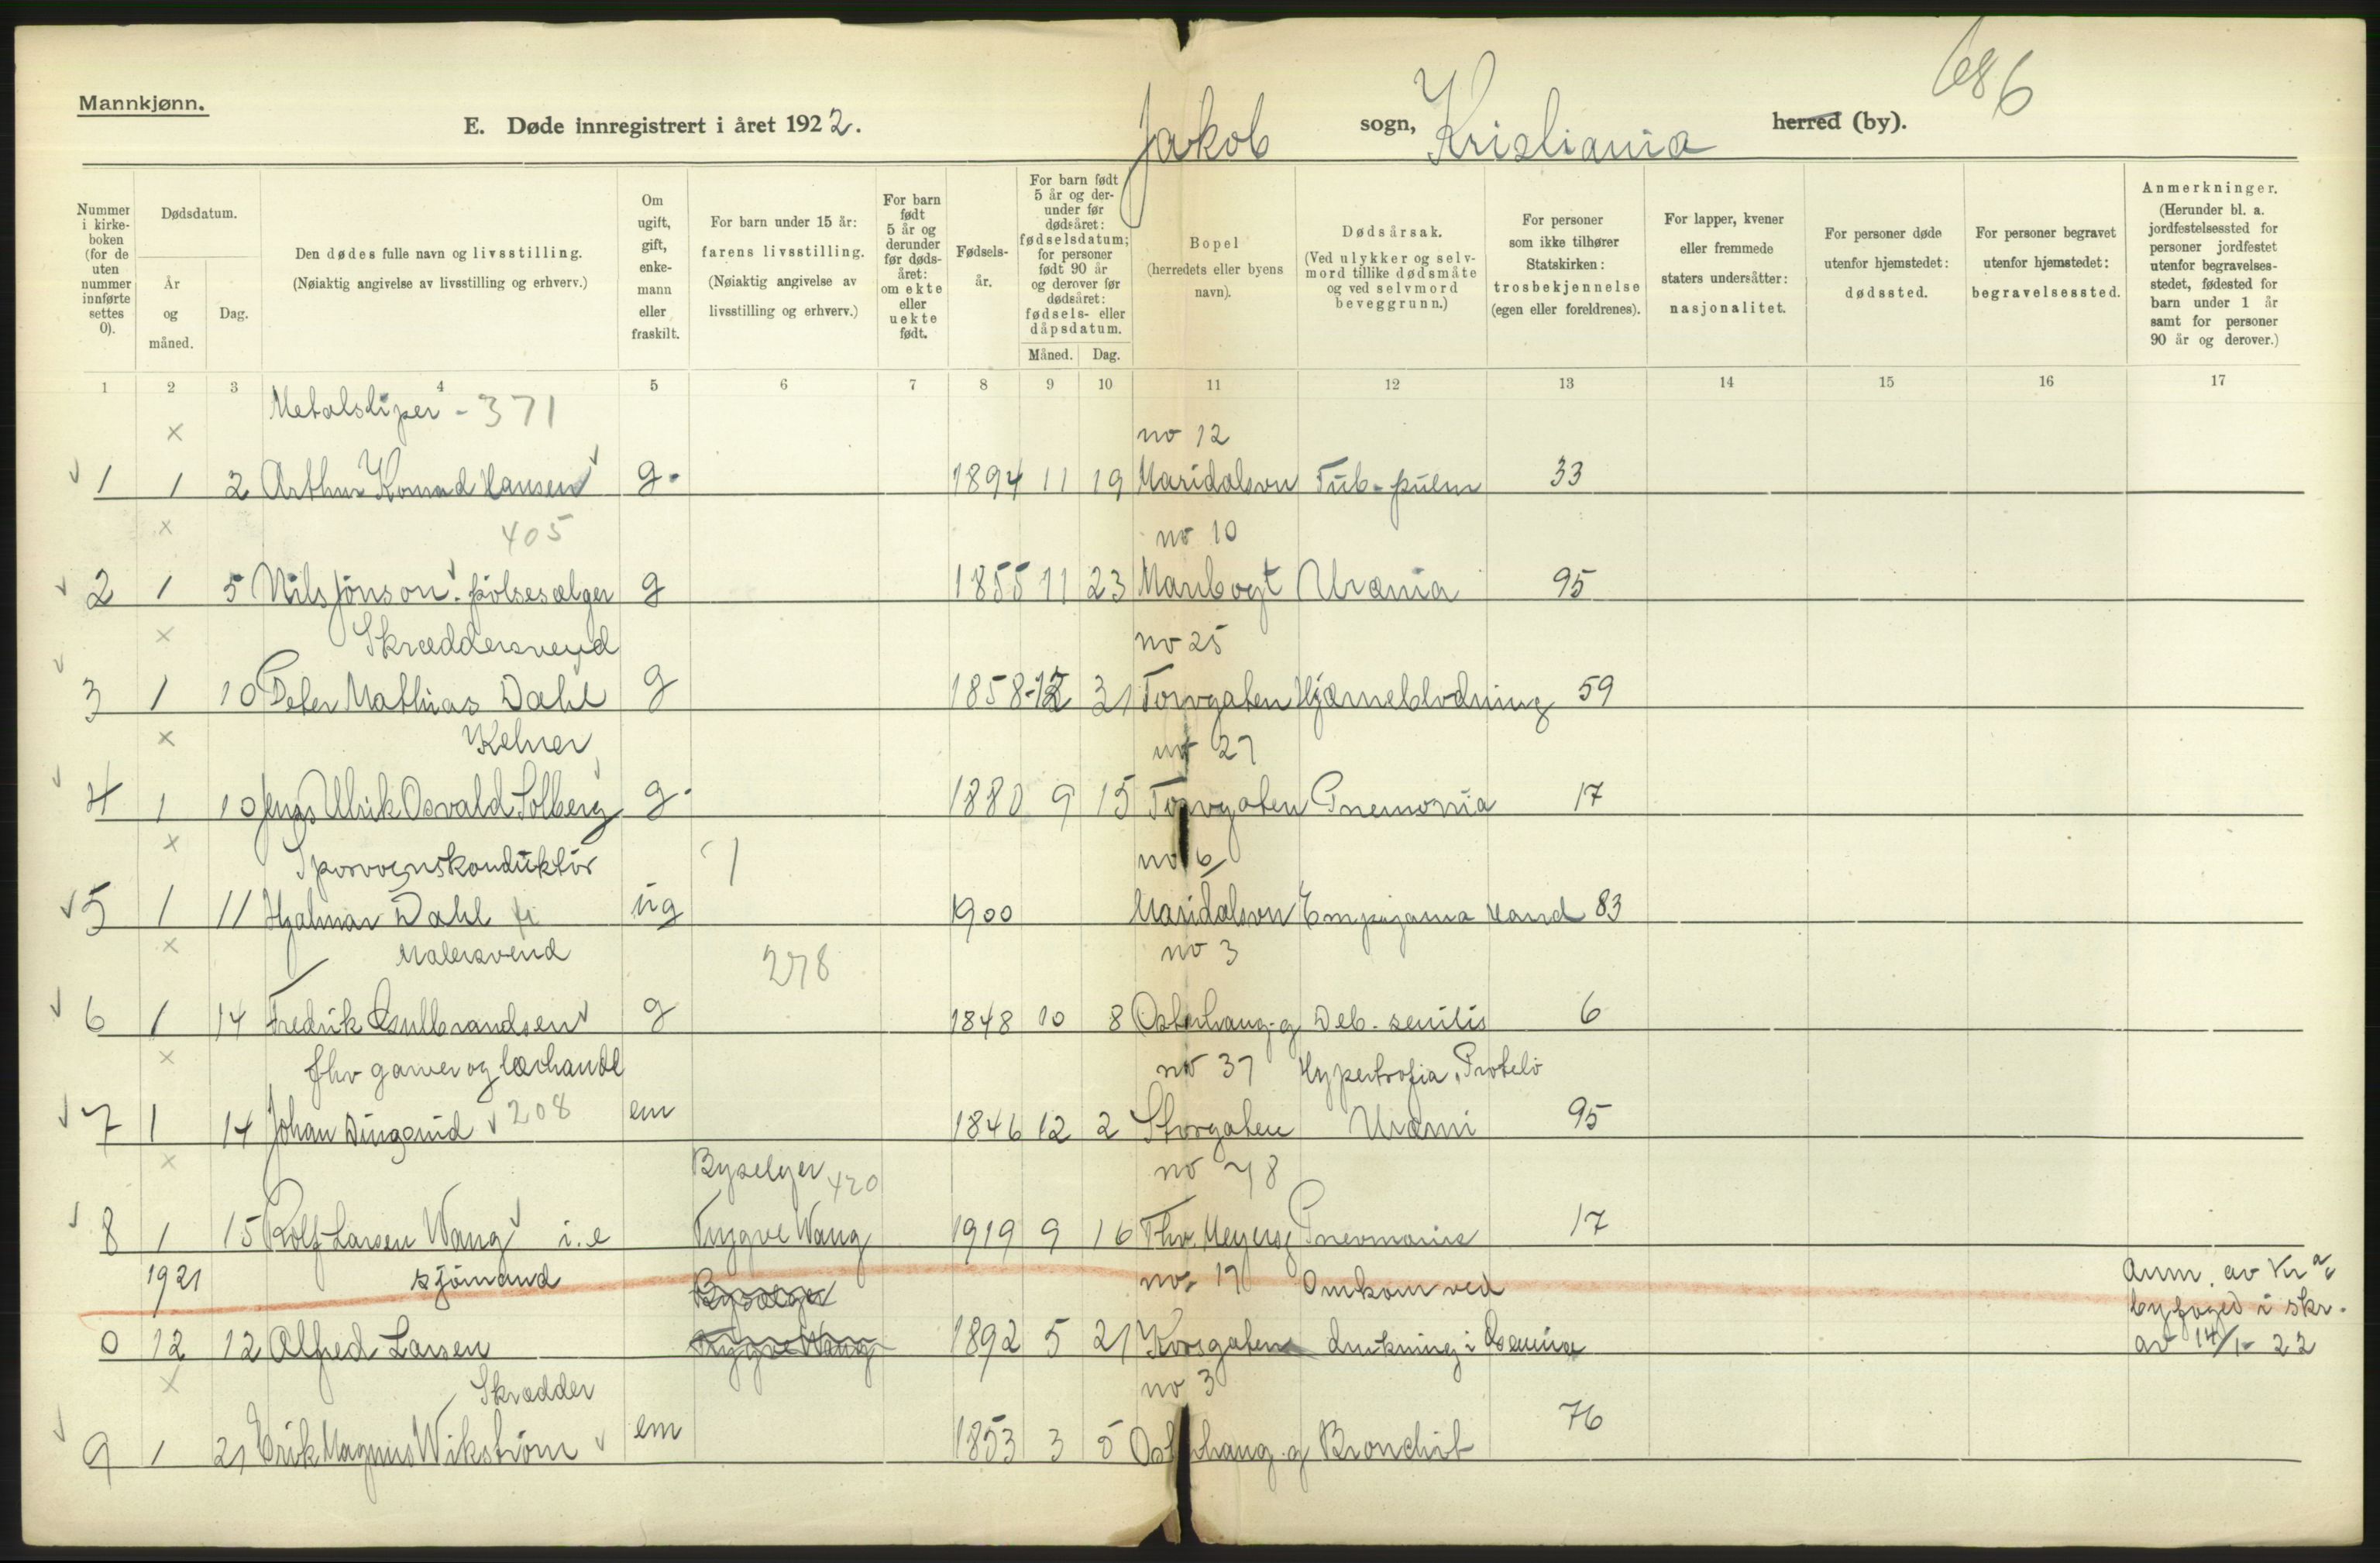 686
Mannkjønn.
E. Døde innregistrert i året 1922. Jakob sogn, Kristiania herred (by).
Nummer i kirkeboken (for de uten nummer innførte settes 0).
Dødsdatum.
År og måned.
Dag.
Den dødes fulle navn og livsstilling.
(Nøiaktig angivelse av livsstilling og erhverv.)
Om ugift, gift, enkemann eller fraskilt.
For barn under 15 år: farens livsstilling.
(Nøiaktig angivelse av livsstilling og erhverv.)
For barn født 5 år og derunder før dødsåret: om ekte eller uekte født.
Fødselsår.
For barn født 5 år og derunder før dødsåret: fødselsdatum; for personer født 90 år og derover før dødsåret: fødsels- eller dåpsdatum.
Måned. Dag.
Bopel (herredets eller byens navn).
Dødsårsak.
(Ved ulykker og selvmord tillike dødsmåte og ved selvmord beveggrunn.)
For personer som ikke tilhører Statskirken: trosbekjennelse (egen eller foreldrenes).
For lapper, kvener eller fremmede staters undersåtter: nasjonalitet.
For personer døde utenfor hjemstedet: dødssted.
For personer begravet utenfor hjemstedet: begravelsessted.
Anmerkninger.
(Herunder bl. a. jordfestelsessted for personer jordfestet utenfor begravelsesstedet, fødested for barn under 1 år samt for personer 90 år og derover.)
1 2 3 4 5 6 7 8 9 10 11 12 13 14 15 16 17
Metalsliper - 371
x no 12
1 1 2 Arthur Konrad Hansen g. 1894 11 19 Maridalsvn Tub. pulm 33
x 405 no 10
2 1 5 Nils Jönson. pölsesælger g 1855 11 23 Maribogt Uræmia 95
x Skræddersvend no 25
3 1 10 Peter Mathias Dahl g 1858 12 31 Torvgaten Hjærneblodning 59
x Kelner no 27
4 1 10 Jens Ulrik Osvald Solberg g. 1880 9 15 Torvgaten Pnemonia 17
x Sporvognskonduktör 1 no 6
5 1 11 Hjalmar Dahl ug 1900 Maridalsvn 83
x Malersvend 278 no 3
6 1 14 Fredrik Gulbrandsen g 1848 10 8 Osterhaug.g Deb. senilis 6
x fhv garver og lærhandl no 37 Hypertrofia
7 1 14 Johan 208 em 1846 12 2 Storgaten Uræmi 95
x Byselger 420 no 48
8 1 15 Rolf Larsen Wang i.e Trygve Wang 1919 9 16 Thv. Meyersg Pnevmonie 17
1921 sjömand Bysælger no. 19 Omkom ved Anm. av Kra
byfoged i skr.
0 12 12 Alfred Larsen Trygve Wang 1892 5 21 Korsgaten drukning i av 14/1- 22
x Skrædder no 3
9 1 21 Erik Magnus Wikström em 1853 3 5 Osterhaug.g Bronchit 76